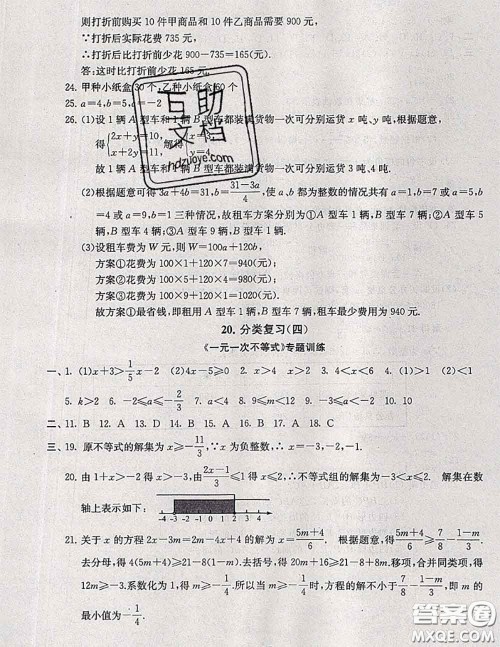 则打折前购买 10 件甲商品和 10 件乙商品需要 900 元,
∵打折后实际花费 735 元,
∴打折后比打折前少花 900-735=165(元).
答:这时比打折前少花 165 元.
24. 甲种小纸盒 30 个,乙种小纸盒 60 个
25. a=4,b=5,a=-2
26. (1)设 1 辆 A 型车和 1 辆 B 型车都装满货物一次可分别运货 x 吨、y 吨,根据题意,
得{2x+y=10, x+2y=11, 解得{x=3, y=4.
故 1 辆 A 型车和 1 辆 B 型车都装满货物一次可分别运货 3 吨、4 吨.
(2)根据题意可得 3a+4b=31,b=(31-3a)/4,使 a、b 都为整数的情况共有 a=1,b=7 或 a=5,b
=4 或 a=9,b=1 三种情况,故租车方案分别为①A 型车 1 辆,B 型车 7 辆;②A 型车 5
辆,B 型车 4 辆;③A 型车 9 辆,B 型车 1 辆.
(3)设租车费为 W 元,则 W=100a+120b,
方案①花费为 100×1+120×7=940(元);
方案②花费为 100×5+120×4=980(元);
方案③花费为 100×9+120×1=1020(元).
故方案①最省钱,即租用 A 型车 1 辆,B 型车 7 辆,租车最少费用为 940 元.
20. 分类复习(四)
《一元一次不等式》专题训练
一、1. (1)x+3>1/5x-2 (2)4x-5⩾0 2. >3 3. >4 4. x<2 5. x>-1 6. >2 7. <1
5. k>2 8. -2⩽a⩽-2/3 7. a<4 8. 9⩽m<12 9. -2 10. 10
二、11. B 12. A 13. D 14. B 15. A 16. A 17. A 18. C
三、19. 原不等式的解集为 x⩾-11/3,∵x 为负整数,∴x=-1,-2,-3.
20. 由 1+x>-2 得 x>-3,由(2x-1)/3⩽1 得 x⩽2,∴不等式组的解集为-3<x⩽2. 解集在数
轴上表示如下:
-4 -3 -2 -1 0 1 2 3 4
21. 关于 x 的方程 2x-3m=2m-4x+4 的解为 x=(5m+4)/6. 根据题意,得(5m+4)/6⩾7/8-(1-m)/3.
去分母,得 4(5m+4)⩾21-8(1-m).去括号,得 20m+16⩾21-8+8m.移项,合并同类项,得
12m⩾-3.系数化为 1,得 m⩾-1/4.所以当 m⩾-1/4时,方程的解不小于7/8-(1-m)/3,即 m 的
最小值为-1/4.
互助
文档
hdzuoye.com
答案圈
MXQE.COM